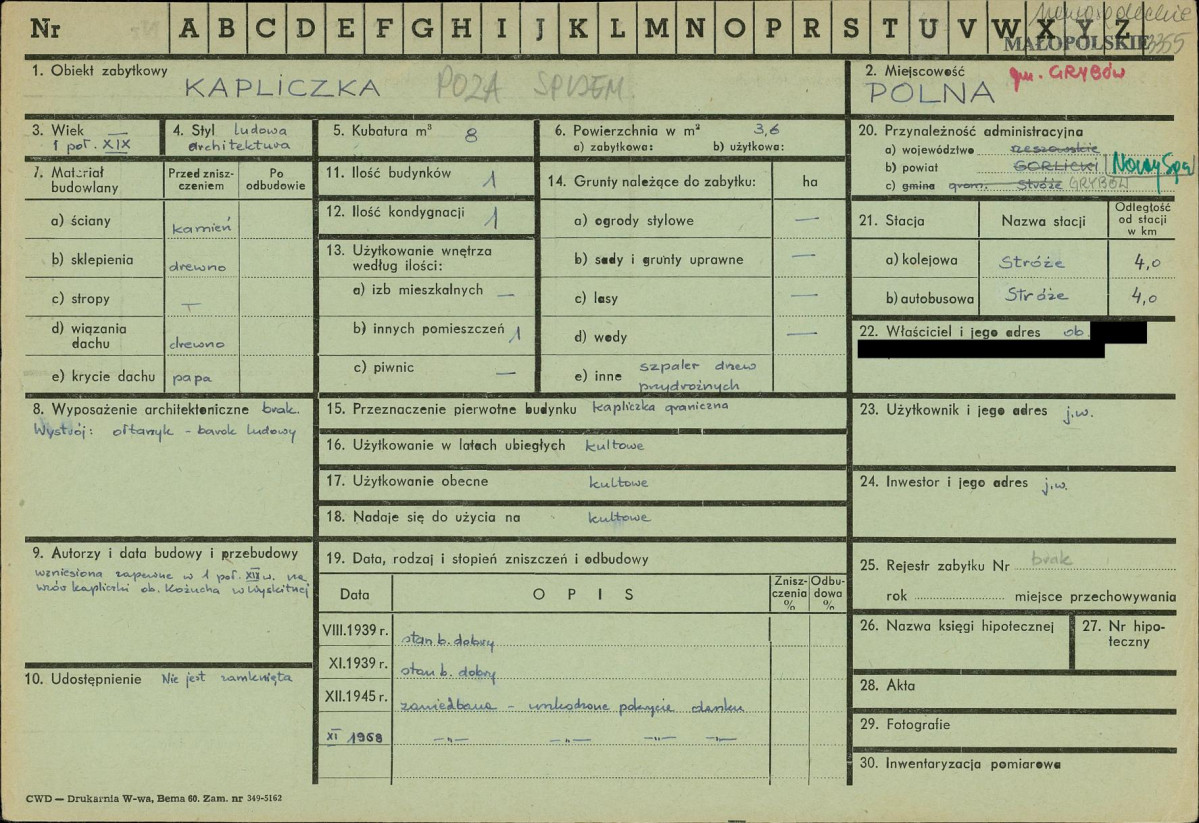 Nr A B C D E F G H I J K L M N O P R S T U V W X Y Z
nowosądeckie
MAŁOPOLSKIE 3355
1. Obiekt zabytkowy
KAPLICZKA POZA SPISEM
2. Miejscowość gm. GRYBÓW
POLNA
3. Wiek
1 poł. XIX
4. Styl ludowa
architektura
5. Kubatura m³ 8
6. Powierzchnia w m² 3,6
a) zabytkowa: b) użytkowa:
7. Materiał
budowlany
Przed znisz-
czeniem
Po
odbudowie
a) ściany kamień
b) sklepienia drewno
c) stropy —
d) wiązania
dachu drewno
e) krycie dachu papa
8. Wyposażenie architektoniczne brak.
Wystrój: ołtarzyk - barok ludowy
9. Autorzy i data budowy i przebudowy
wzniesiona zapewne w 1 poł. XIX w. na
wzór kapliczki ob. Kożucha w Wyskitnej
10. Udostępnienie Nie jest zamknięta
11. Ilość budynków 1
12. Ilość kondygnacji 1
13. Użytkowanie wnętrza
według ilości:
a) izb mieszkalnych —
b) innych pomieszczeń 1
c) piwnic —
14. Grunty należące do zabytku: ha
a) ogrody stylowe —
b) sady i grunty uprawne —
c) lasy —
d) wody —
e) inne szpaler drzew
przydrożnych
15. Przeznaczenie pierwotne budynku kapliczka graniczna
16. Użytkowanie w latach ubiegłych kultowe
17. Użytkowanie obecne kultowe
18. Nadaje się do użycia na kultowe
19. Data, rodzaj i stopień zniszczeń i odbudowy
Data OPIS Znisz-
czenia
%
Odbu-
dowa
%
VIII.1939 r. stan b. dobry
XI.1939 r. stan b. dobry
XII.1945 r. zaniedbana - uszkodzone pokrycie daszku
XI 1968 —„— —„— —„— —„—
20. Przynależność administracyjna
a) województwo rzeszowskie
b) powiat GORLICKI Nowy Sącz
c) gmina grom. Stróże GRYBÓW
21. Stacja Nazwa stacji Odległość
od stacji
w km
a) kolejowa Stróże 4,0
b) autobusowa Stróże 4,0
22. Właściciel i jego adres ob.
23. Użytkownik i jego adres j.w.
24. Inwestor i jego adres j.w.
25. Rejestr zabytku Nr brak
rok miejsce przechowywania
26. Nazwa księgi hipotecznej
27. Nr hipo-
teczny
28. Akta
29. Fotografie
30. Inwentaryzacja pomiarowa
CWD — Drukarnia W-wa, Bema 60. Zam. nr 349-5162